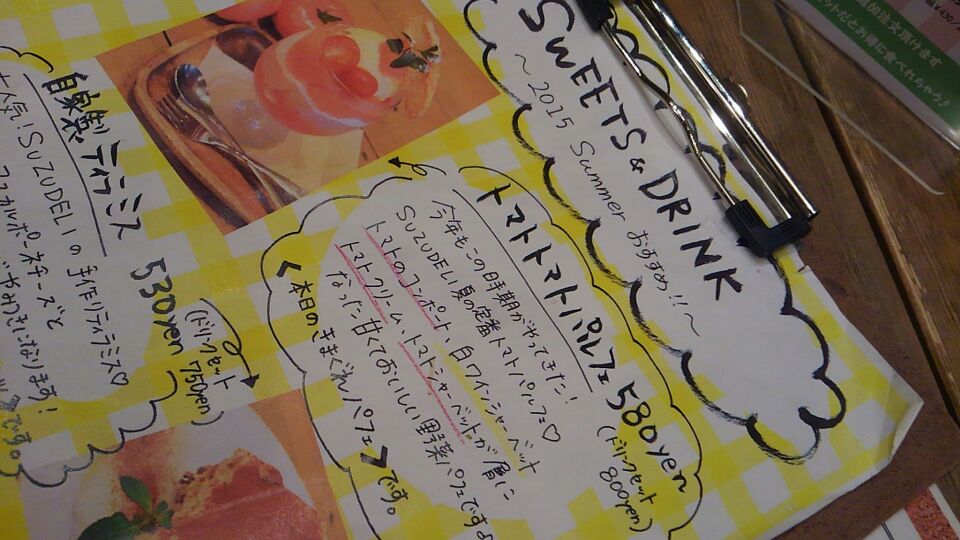 SWEETS & DRINK
～2015 Summer おすすめ!!～
トマトトマトパルフェ 580yen
(ドリンクセット
800yen)
今年もこの時期がやってきた!
SUZUDELI 夏の定番トマトパルフェ♡
トマトのコンポート、白ワインシャーベット
トマトクリーム、トマトシャーベットが層に
なった甘くておいしい野菜パフェです♪
<本日のきまぐれパフェ>です。
自家製ティラミス
530yen
(ドリンクセット
750yen)
大人気!SUZUDELIの手作りティラミス♡
マスカルポーネチーズと
になります!
です。
注文頂けます
セットだとお得に食べれちゃう♪
¥430